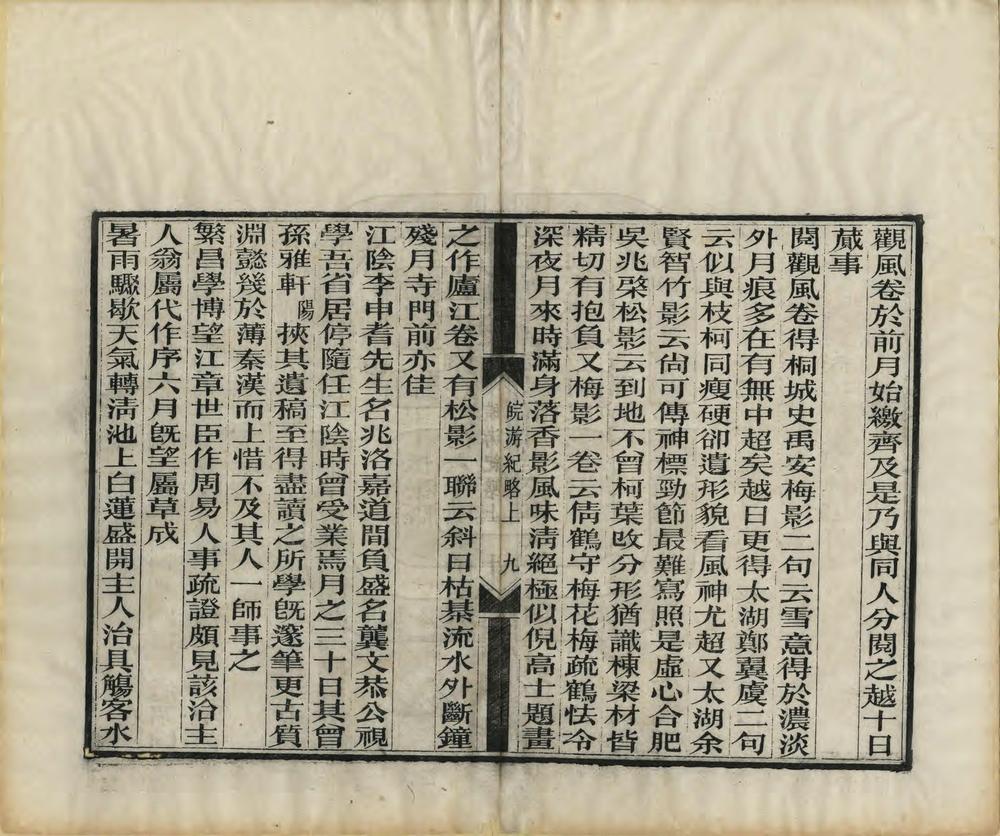 觀風卷於前月始繳齊及是乃與同人分閱之越十日
蕆事
閱觀風卷得桐城史禹安梅影二句云雪意得於濃淡
外月痕多在有無中超矣越日更得太湖鄭翼虞二句
云似與枝柯同瘦硬卻遺形貌看風神尤超又太湖余
賢智竹影云尙可傳神標勁節最難寫照是虛心合肥
吳兆棨松影云到地不曾柯葉改分形猶識棟梁材皆
精切有抱負又梅影一卷云倩鶴守梅花梅疏鶴怯冷
深夜月來時滿身落香影風味淸絕極似倪高士題畫
皖游紀略上
九
之作廬江卷又有松影一聯云斜日枯棊流水外斷鐘
殘月寺門前亦佳
江陰李申耆先生名兆洛嘉道間負盛名龔文恭公視
學吾省居停隨任江陰時曾受業焉月之三十日其曾
孫雅軒陽挾其遺稿至得盡讀之所學旣邃筆更古質
淵懿幾於薄秦漢而上惜不及其人一師事之
繁昌學博望江章世臣作周易人事疏證頗見該洽主
人翁屬代作序六月旣望屬草成
暑雨驟歇天氣轉淸池上白蓮盛開主人治具觴客水